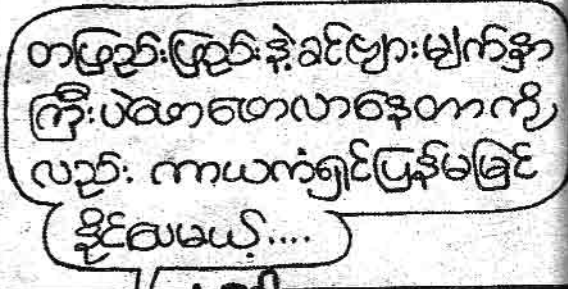 တဖြည်းဖြည်းနဲ့ခင်ဗျားမျက်နှာ
ကြီးပဲဖောဖောလာနေတာကို
လည်း ကာယကံရှင်ပြန်မမြင်
နိုင်သေမယ့်....